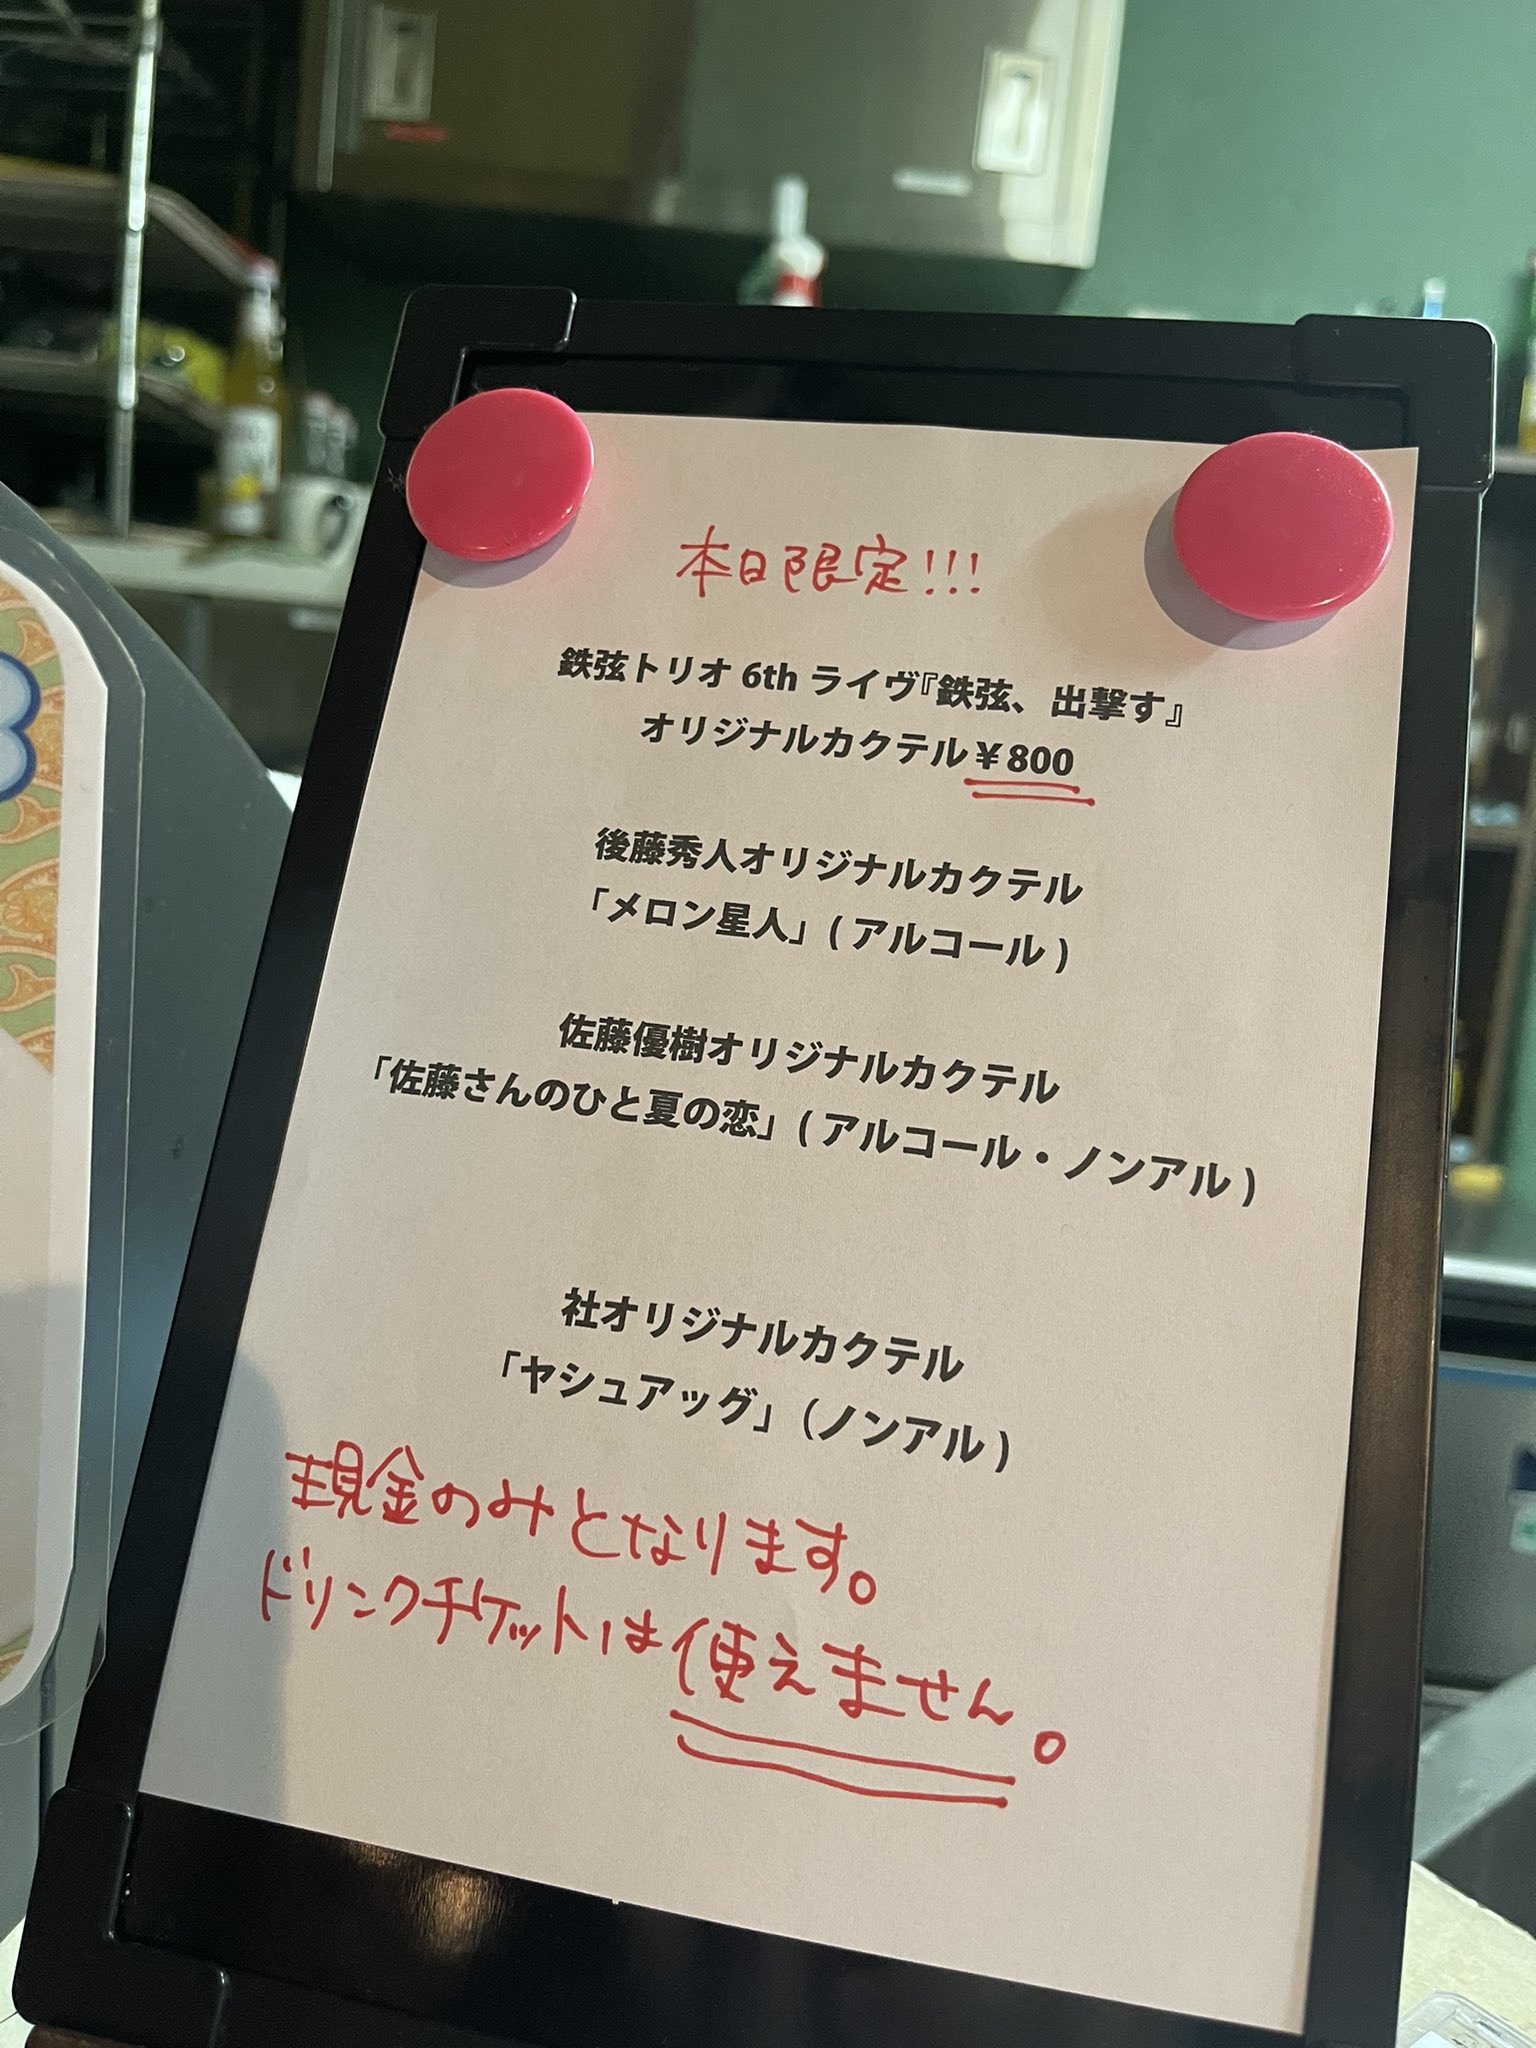 本日限定!!!
鉄弦トリオ 6th ライヴ『鉄弦、出撃す』
オリジナルカクテル￥800
後藤秀人オリジナルカクテル
「メロン星人」(アルコール)
佐藤優樹オリジナルカクテル
「佐藤さんのひと夏の恋」(アルコール・ノンアル)
社オリジナルカクテル
「ヤシュアッグ」(ノンアル)
現金のみとなります。
ドリンクチケットは使えません。